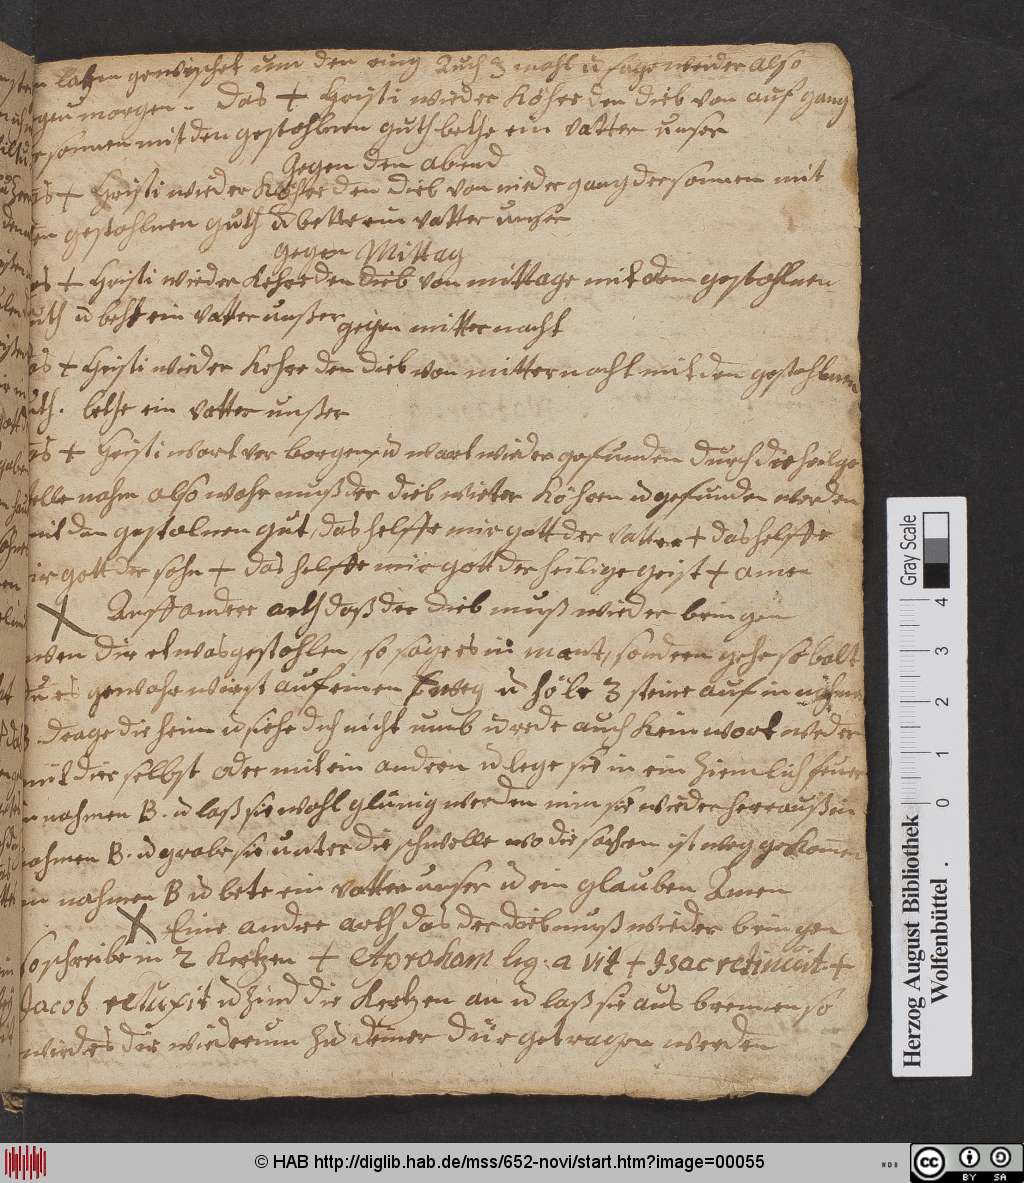 gewischet um den ring Auch 3 mahl u sage wieder also
gegen morgen. Das + Christi wieder köhre den dieb von auf gang
der sonnen mit den gestohlnen guth bethe ein vatter unser
Gegen den abend
das + Christi wieder Köhre den dieb von nieder gang der sonnen mit
den gestohlnen guth u bette ein vatter unser
gegen Mittag
das + Christi wieder Kehre den dieb von mittage mit dem gestohlnen
guth u beht ein vatter unßer
gegen mitternacht
das + Christi wieder Kehre den dieb von mitternacht mit den gestohlnen
guth. bethe ein vatter unßer
das + Christi wart ver borgen u wart wieder gefunden durch die heilge
helle nahm also wahr muß der dieb wieter Köhren u gefunden werden
mit den gestolnen gut, das helffe mir gott der vatter + das helffe
mir gott der sohn + das helffe mir gott der heilige geist + amen
X Auff andere arth daß der dieb muß wieder bringen
wen dir etwas gestohlen, so sage es niemant, sondern gehe so balt
du es gewahr wirst auf einen weg u höle 3 steine auf in nahmen
B drage die heim u siehe dich nicht umb u rede auch kein wort weder
mit dier selbst oder mit ein andern u lege sie in ein ziemlich feuer
in nahmen B. u laß sie wohl glünig werden nim sie wieder herrauß in
nahmen B. u grabe sie unter die schwelle wo die sachen ist weg gekomen
in nahmen B u bete ein vatter unser u ein glauben Amen
X Eine andre arth das der dieb muß wieder bringen
so schreibe in 2 Kertzen + Abraham lig: a vit + Isac retinuit +
Jacob retuxit u zünd die Kertzen an u laß sie aus brennen so
wird es dir wiederum zu deiner dür getragen werden
Herzog August Bibliothek
Wolfenbüttel
Gray Scale
0 1 2 3 4
© HAB http://diglib.hab.de/mss/652-novi/start.htm?image=00055
NDB
CC BY SA